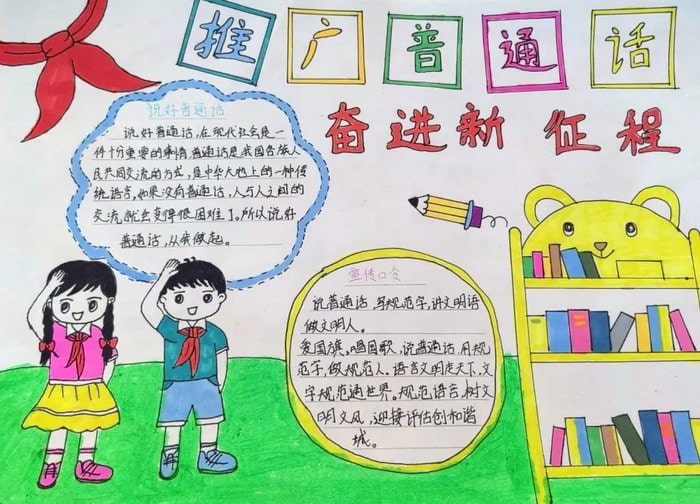 推广普通话
奋进新 征程
说好普通话
说好普通话,在现代社会是一
件十分重要的事情,普通话是我国各族人
民共同交流的方式,是中华大地上的一种传
统语言,如果没有普通话,人与人之间的
交流,就会变得很困难了。所以说好
普通话,从我做起。
宣传口令
说普通话 写规范字,讲文明语
做文明人。
爱国旗,唱国歌,说普通话 用规
范字,做规范人。语言文明走天下,文
字规范通世界。规范语言,树文
明文风,迎接评估创和谐
城。